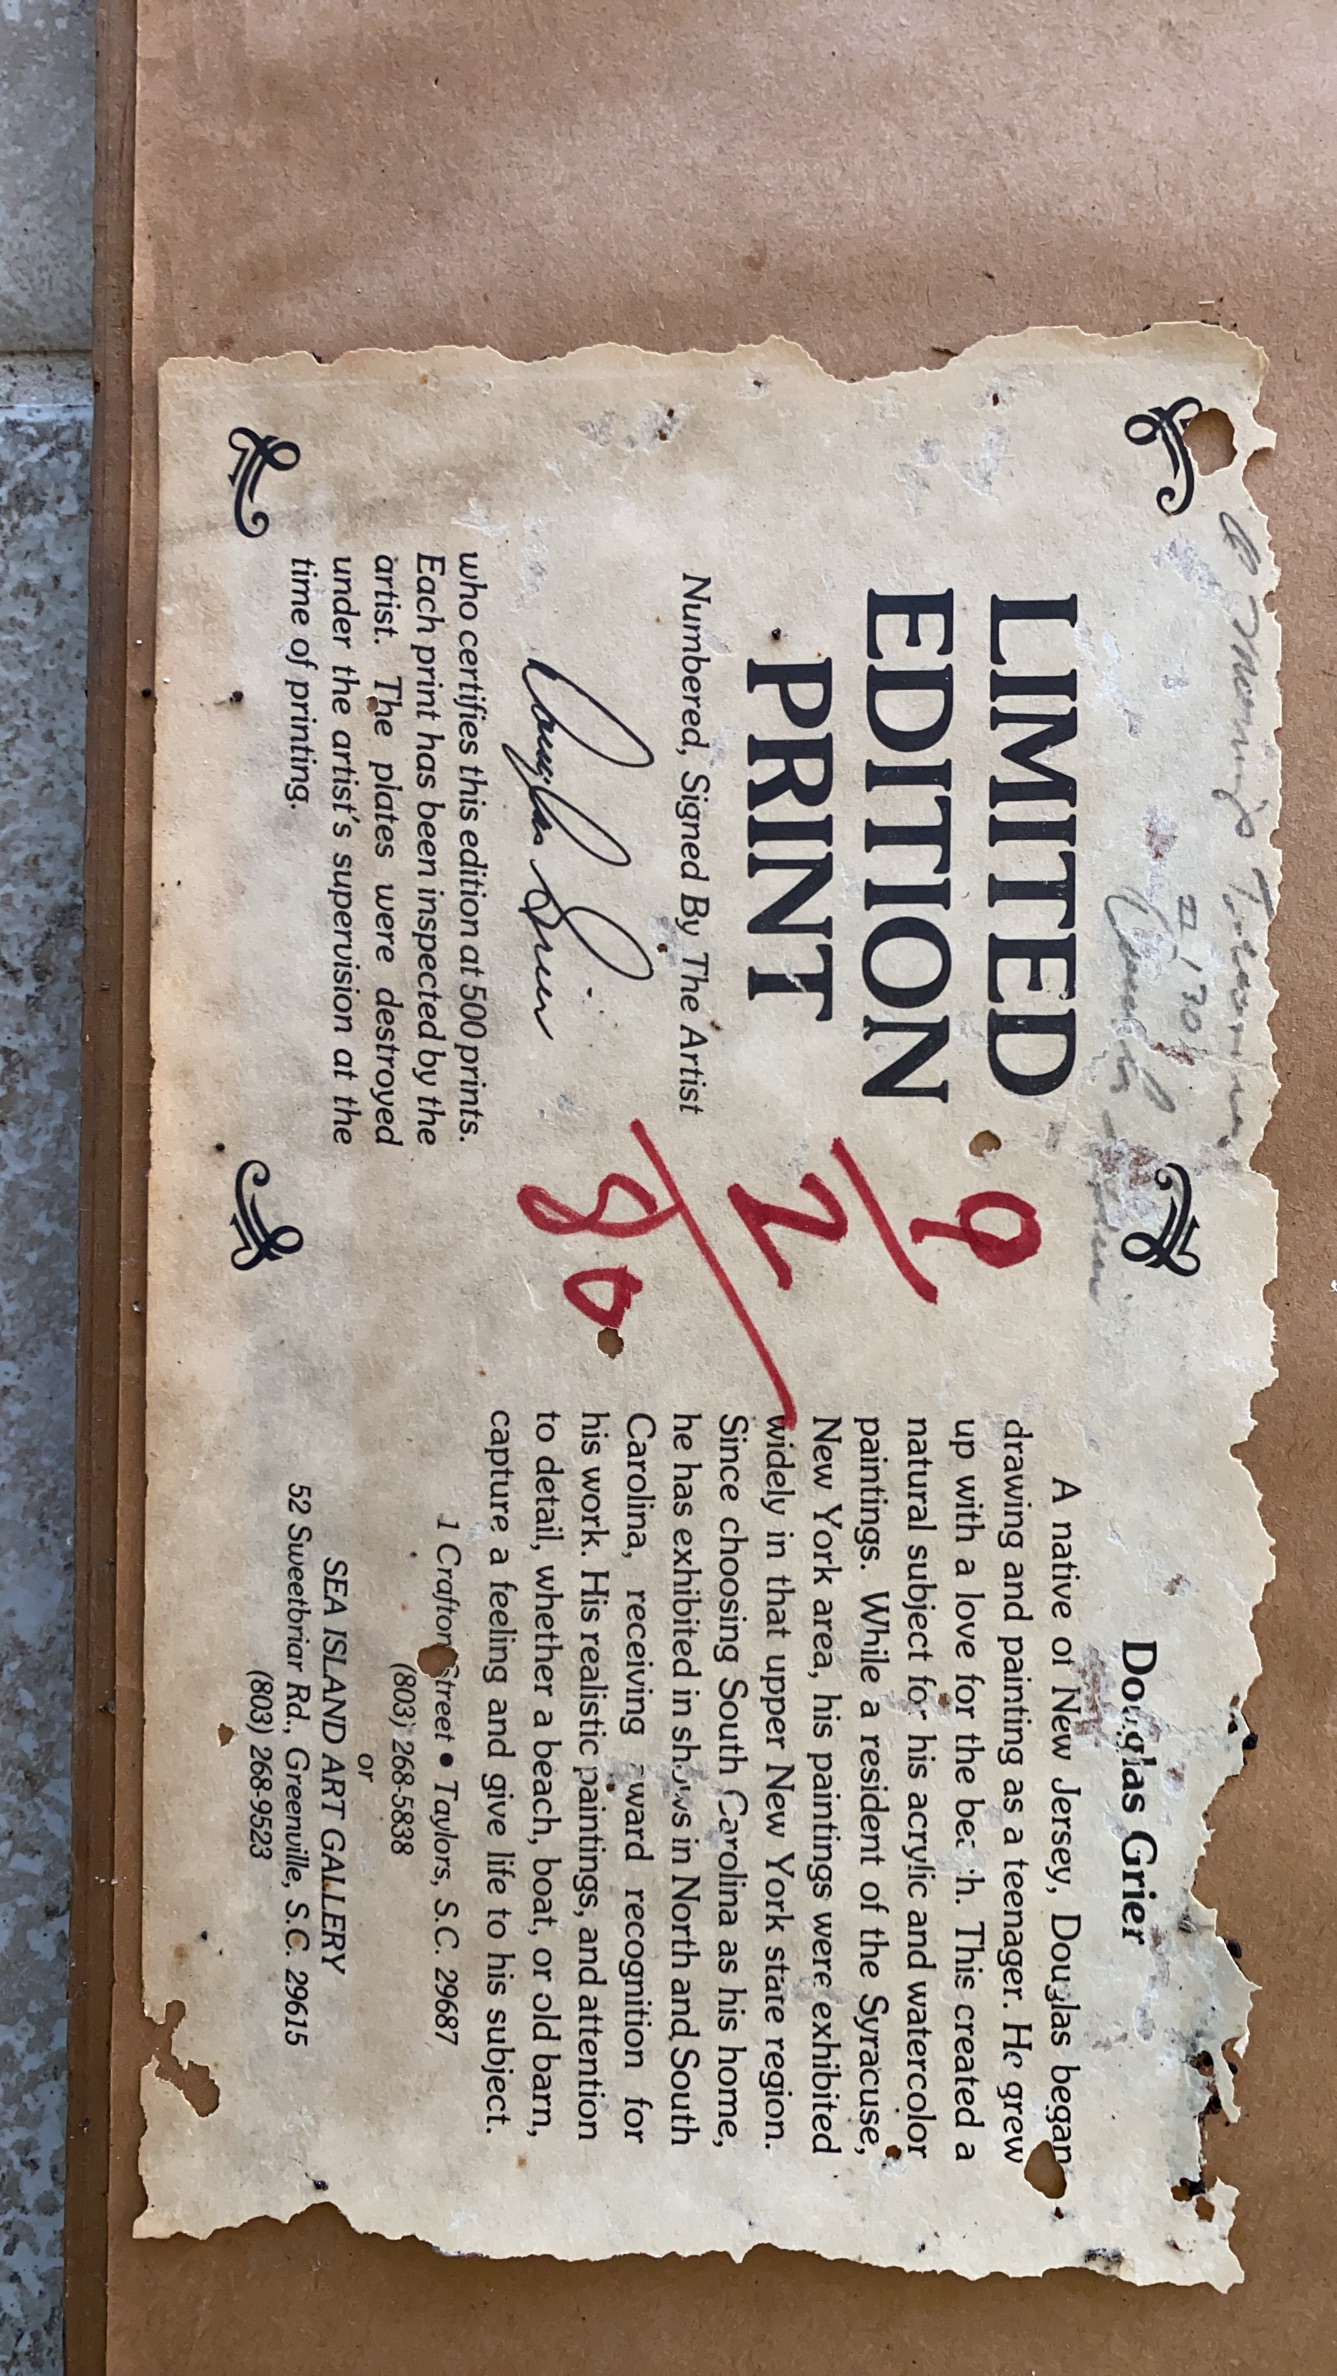 A Morning's Treasure
# 130
Douglas Grier
LIMITED
EDITION
PRINT
Numbered, Signed By The Artist
Douglas Grier
who certifies this edition at 500 prints.
Each print has been inspected by the
artist. The plates were destroyed
under the artist's supervision at the
time of printing.
9/2/80
Douglas Grier
A native of New Jersey, Douglas began
drawing and painting as a teenager. He grew
up with a love for the beach. This created a
natural subject for his acrylic and watercolor
paintings. While a resident of the Syracuse,
New York area, his paintings were exhibited
widely in that upper New York state region.
Since choosing South Carolina as his home,
he has exhibited in shows in North and South
Carolina, receiving award recognition for
his work. His realistic paintings, and attention
to detail, whether a beach, boat, or old barn,
capture a feeling and give life to his subject.
1 Crafton Street • Taylors, S.C. 29687
(803) 268-5838
or
SEA ISLAND ART GALLERY
52 Sweetbriar Rd., Greenville, S.C. 29615
(803) 268-9523